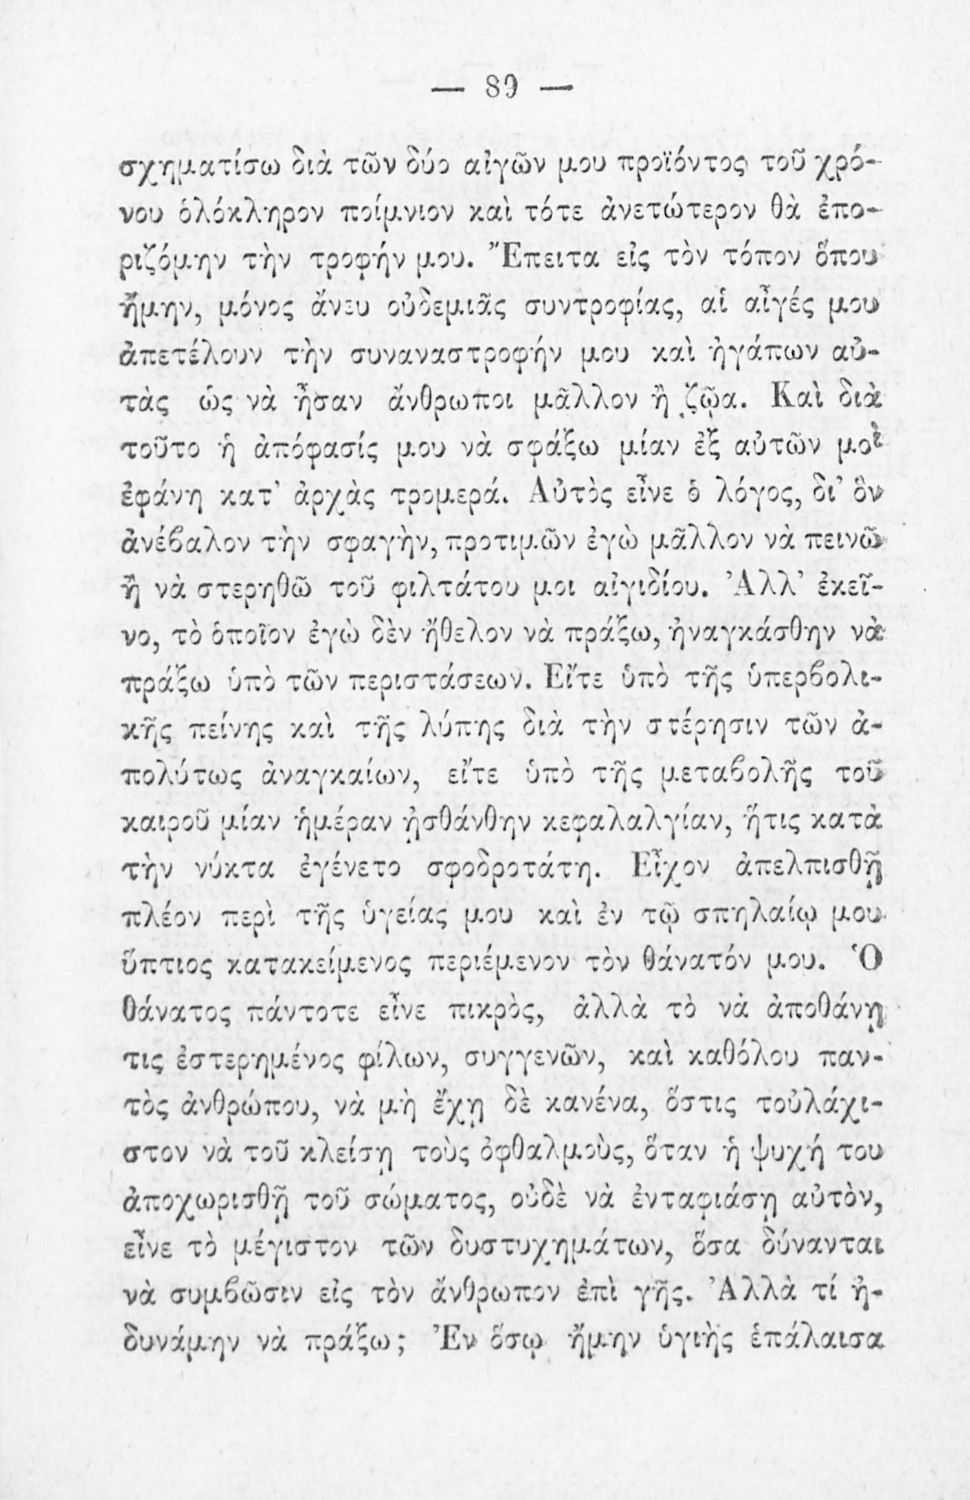 — 89 —
σχηματίσω διὰ τῶν δύο αἰγῶν μου προϊόντος τοῦ χρό-
νου ὁλόκληρον ποίμνιον καὶ τότε ἀνετώτερον θὰ ἐπο-
ριζόμην τὴν τροφήν μου. Ἔπειτα εἰς τὸν τόπον ὅπου
ἤμην, μόνος ἄνευ οὐδεμιᾶς συντροφίας, αἱ αἶγές μου
ἀπετέλουν τὴν συναναστροφήν μου καὶ ἠγάπων αὐ-
τὰς ὡς νὰ ἦσαν ἄνθρωποι μᾶλλον ἢ ζῷα. Καὶ διὰ
τοῦτο ἡ ἀπόφασίς μου νὰ σφάξω μίαν ἐξ αὐτῶν μοὶ
ἐφάνη κατ' ἀρχὰς τρομερά. Αὐτὸς εἶνε ὁ λόγος, δι' ὃν
ἀνέβαλον τὴν σφαγὴν, προτιμῶν ἐγὼ μᾶλλον νὰ πεινῶ
ἢ νὰ στερηθῶ τοῦ φιλτάτου μοι αἰγιδίου. Ἀλλ' ἐκεῖ-
νο, τὸ ὁποῖον ἐγὼ δὲν ἤθελον νὰ πράξω, ἠναγκάσθην νὰ
πράξω ὑπὸ τῶν περιστάσεων. Εἴτε ὑπὸ τῆς ὑπερβολι-
κῆς πείνης καὶ τῆς λύπης διὰ τὴν στέρησιν τῶν ἀ-
πολύτως ἀναγκαίων, εἴτε ὑπὸ τῆς μεταβολῆς τοῦ
καιροῦ μίαν ἡμέραν ᾐσθάνθην κεφαλαλγίαν, ἥτις κατὰ
τὴν νύκτα ἐγένετο σφοδροτάτη. Εἶχον ἀπελπισθῇ
πλέον περὶ τῆς ὑγείας μου καὶ ἐν τῷ σπηλαίῳ μου
ὕπτιος κατακείμενος περιέμενον τὸν θάνατόν μου. Ὁ
θάνατος πάντοτε εἶνε πικρὸς, ἀλλὰ τὸ νὰ ἀποθάνῃ
τις ἐστερημένος φίλων, συγγενῶν, καὶ καθόλου παν-
τὸς ἀνθρώπου, νὰ μὴ ἔχῃ δὲ κανένα, ὅστις τοὐλάχι-
στον νὰ τοῦ κλείσῃ τοὺς ὀφθαλμοὺς, ὅταν ἡ ψυχή του
ἀποχωρισθῇ τοῦ σώματος, οὐδὲ νὰ ἐνταφιάσῃ αὐτὸν,
εἶνε τὸ μέγιστον τῶν δυστυχημάτων, ὅσα δύνανται
νὰ συμβῶσιν εἰς τὸν ἄνθρωπον ἐπὶ γῆς. Ἀλλὰ τί ἠ-
δυνάμην νὰ πράξω; Ἐν ὅσῳ ἤμην ὑγιὴς ἐπάλαισα